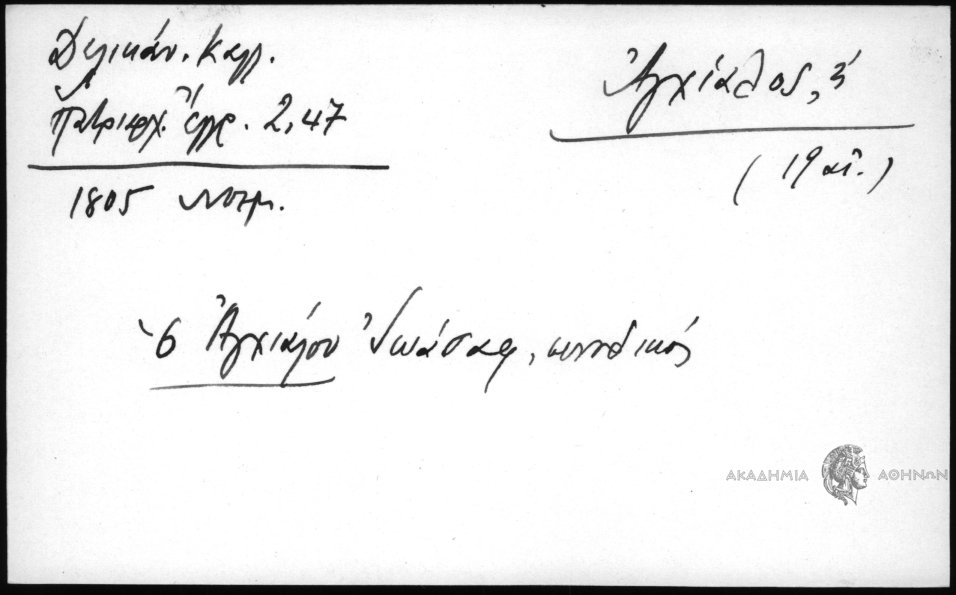 Δελικάν. Καλλ.
Πατριαρχ. ἔγγρ. 2,47
1805 Νοεμ.
Ἀγχίαλος, ἡ
(19 αἰ.)
ὁ Ἀγχιάλου Ἰωάσαφ, συνοδικός
ΑΚΑΔΗΜΙΑ ΑΘΗΝΩΝ